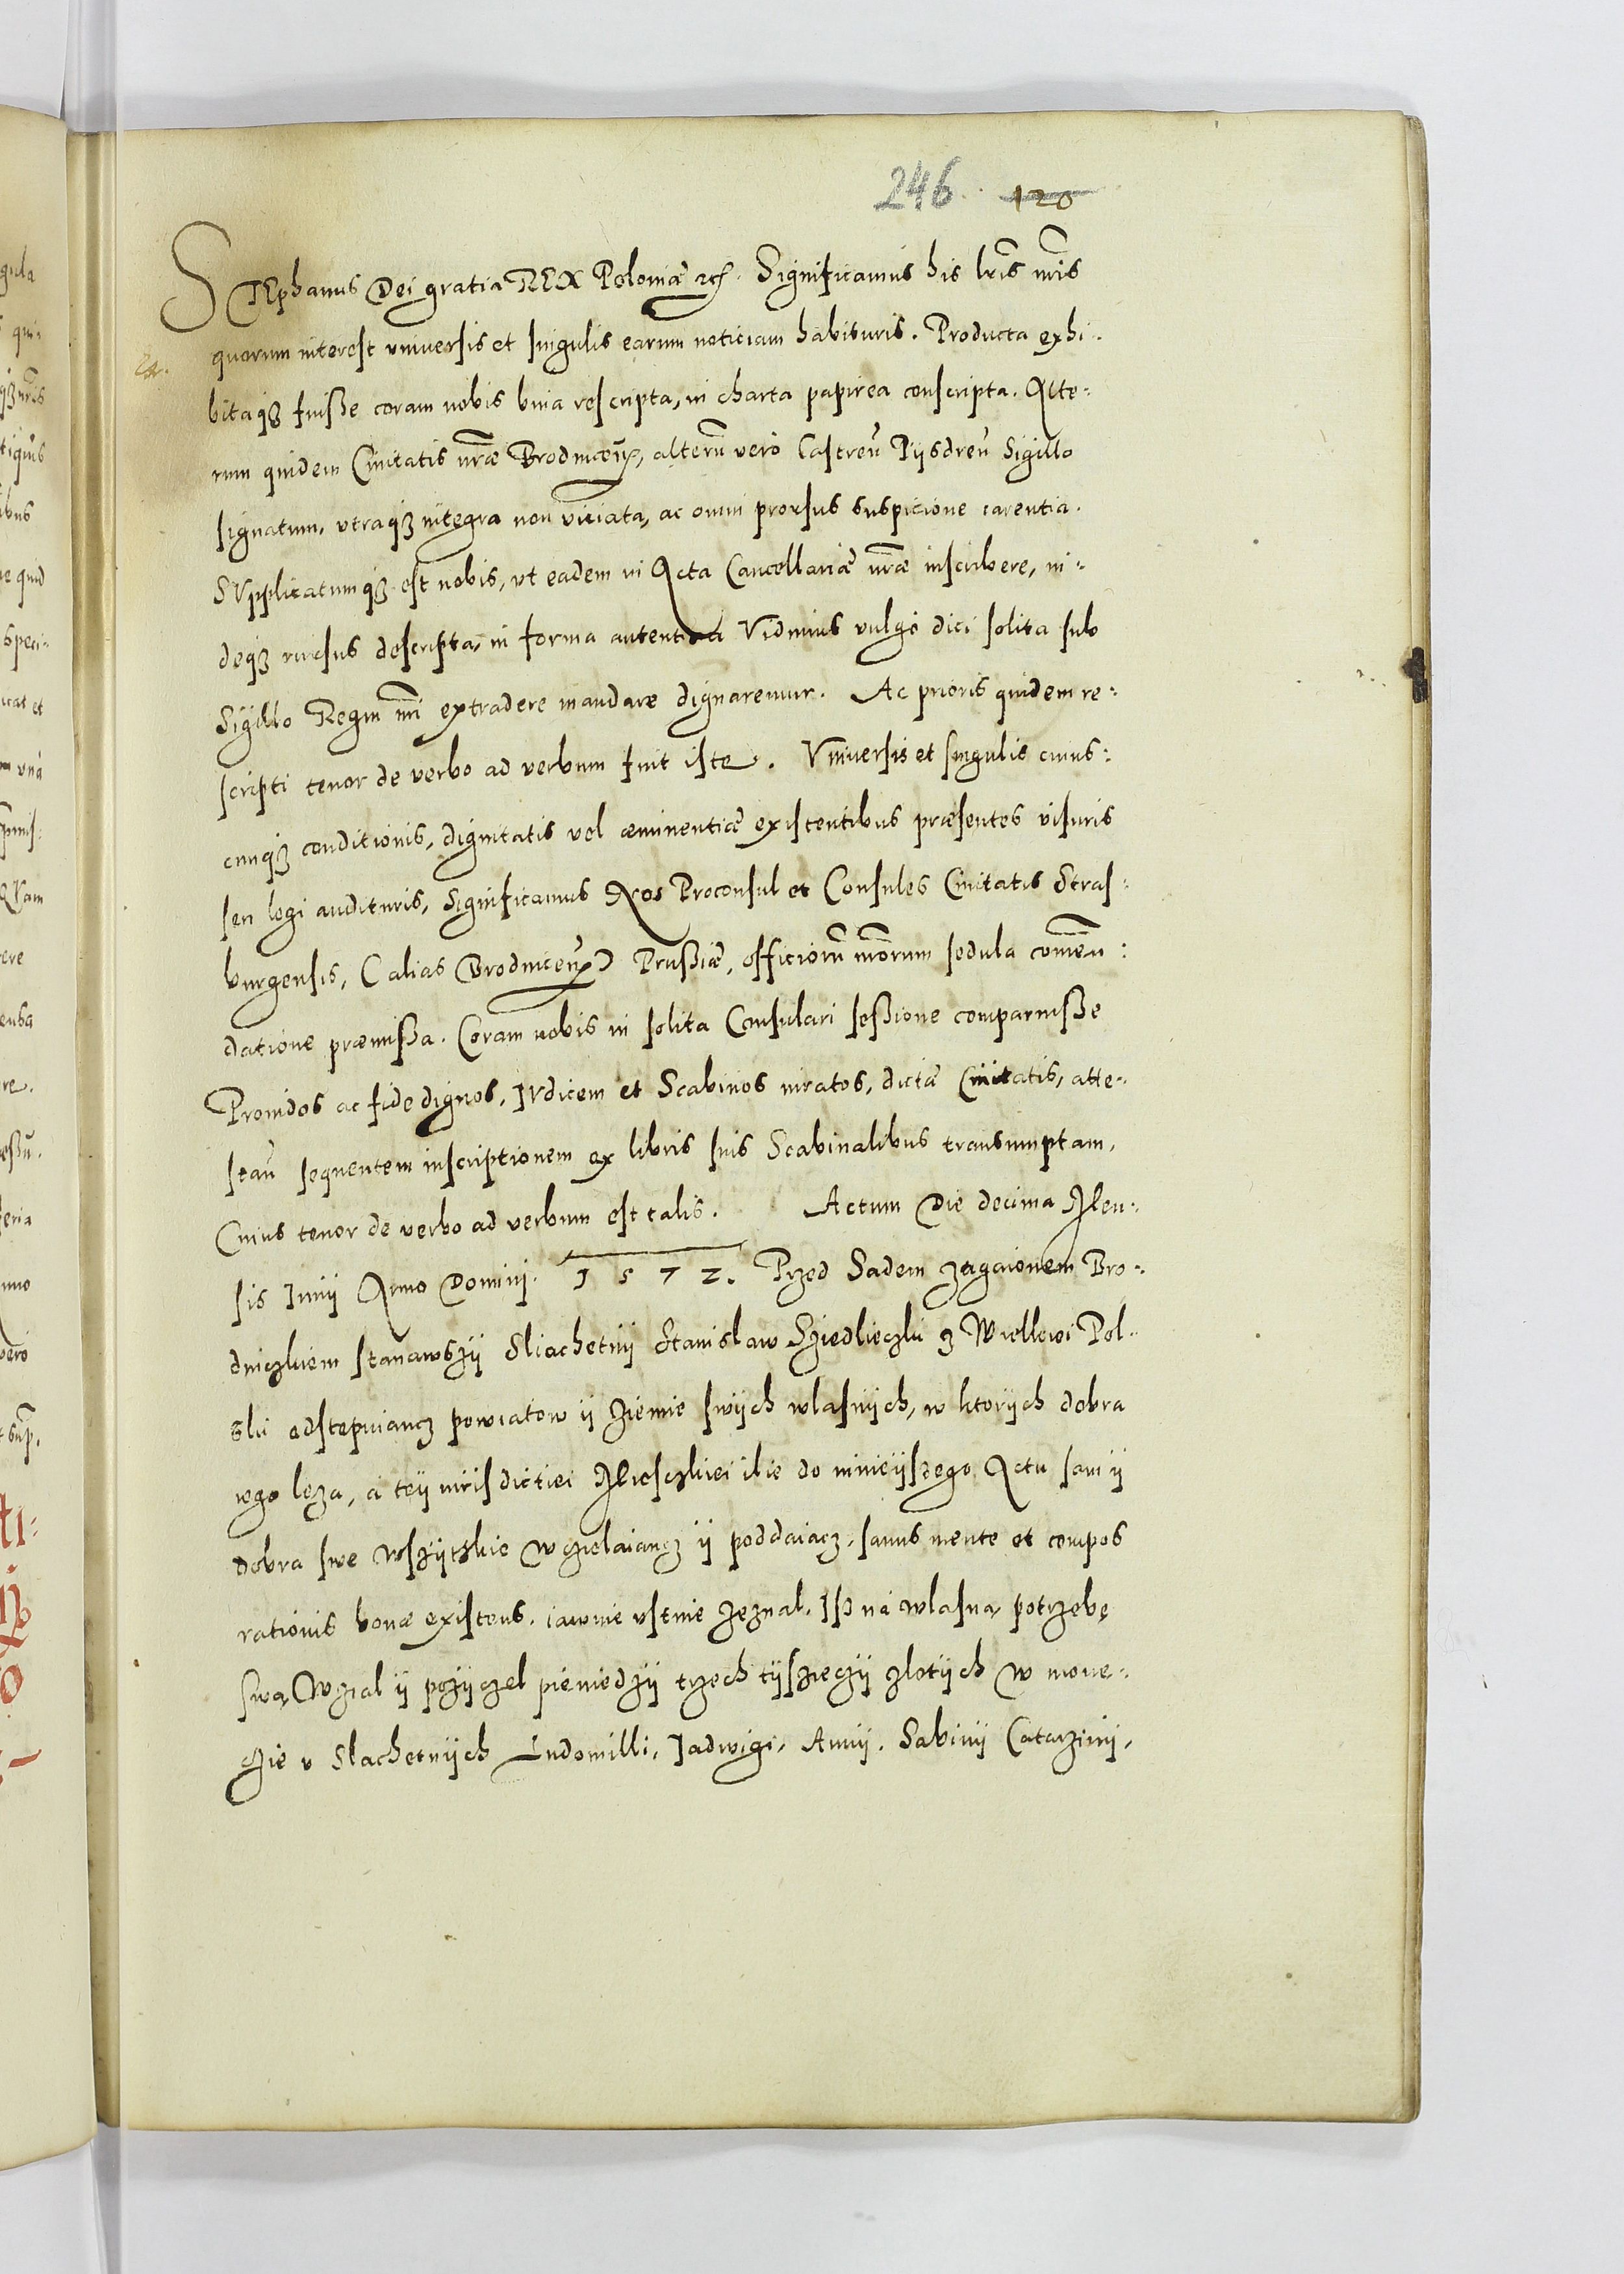 246. 120
STEphanus Dei gratia REX Poloniæ etc. Significamus his lr̃is nr̃is
quorum interest vniuersis et singulis earum noticiam habituris. Producta exhi-
bitaqз fuisse coram nobis bina rescripta, in charta papirea conscripta. Alte-
rum quidem Ciuitatis nr̃æ Brodnicen̄, alterū vero Castren̄ Pijsdren̄ Sigillo
signatum, vtraqз integra non viciata, ac omni prorsus suspicione carentia.
SVpplicatumqз est nobis, vt eadem in Acta Cancellariæ nr̃æ inscribere, in-
deqз rursus descripta, in forma autentica Vidimus vulgo dici solita sub
Sigillo Regni nr̃i extradere mandare dignaremur. Ac prioris quidem re-
scripti tenor de verbo ad verbum fuit iste. Vniuersis et singulis cuius-
cunqз conditionis, dignitatis vel æminentiæ existentibus præsentes visuris
seu legi audituris, Significamus Nos Proconsul et Consules Ciuitatis Stras-
burgensis, (alias Brodnicen̄) Prussiæ, officiorū nr̃orum sedula com̄en-
datione præmissa. Coram nobis in solita Consulari sessione comparuisse
Prouidos ac fide dignos, IVdicem et Scabinos iuratos, dictæ Ciuitatis, atte-
stan̄ sequentem inscriptionem ex libris suis Scabinalibus transumptam,
Cuius tenor de verbo ad verbum est talis. Actum Die decima Men-
sis Iunij Anno Domini. 1572. Przed Sadem zagaionem Bro-
dniczkiem stanawszÿ Sliachetnÿ Stanislaw Sziedlieczki z Wiellkei Pol-
ski odstepuiancz powiatow ÿ ziemie swÿch wlasnÿch, w ktorÿch dobra
iego leza, a teÿ iurisdictiei Mieſczkiei ilie do ninieÿszego Actu sam ÿ
dobra swe wszÿtzkie wczielaiancz ÿ poddaiacz, sanus mente et compos
rationis bonæ existens, iawnie vstnie zeznal, Isz na wlasną potrzebę
swą Wzial ÿ pozÿczel pieniedzÿ trzech tÿszieczÿ zlotÿch w mone-
czie v Slachetnÿch Ludomilli, Jadwigi, Annÿ, Sabinÿ Catarzinÿ,